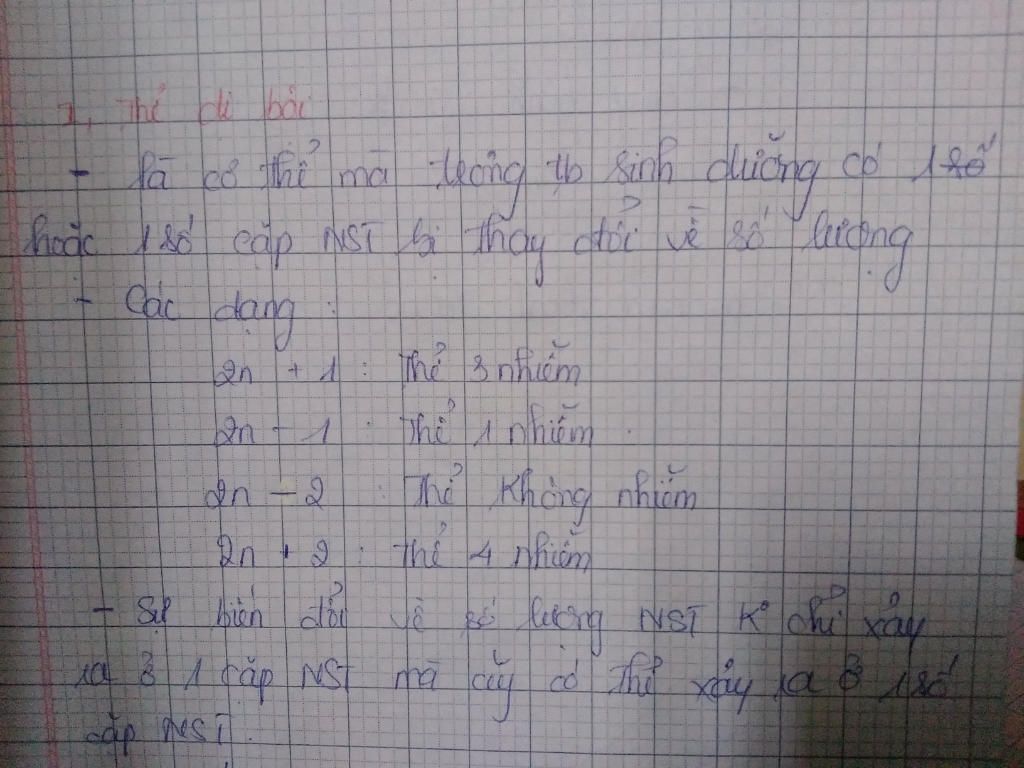 1, Thể dị bội
- là cơ thể mà trong tb sinh dưỡng có 1 số
hoặc 1 số cặp NST bị thay đổi về số lượng
- Các dạng :
2n + 1 : Thể 3 nhiễm
2n - 1 : Thể 1 nhiễm
2n - 2 : Thể không nhiễm
2n + 2 : Thể 4 nhiễm
- Sự biến đổi về số lượng NST K° chỉ xảy
ra ở 1 cặp NST mà cũg có thể xảy ra ở 1 số
cặp NST.